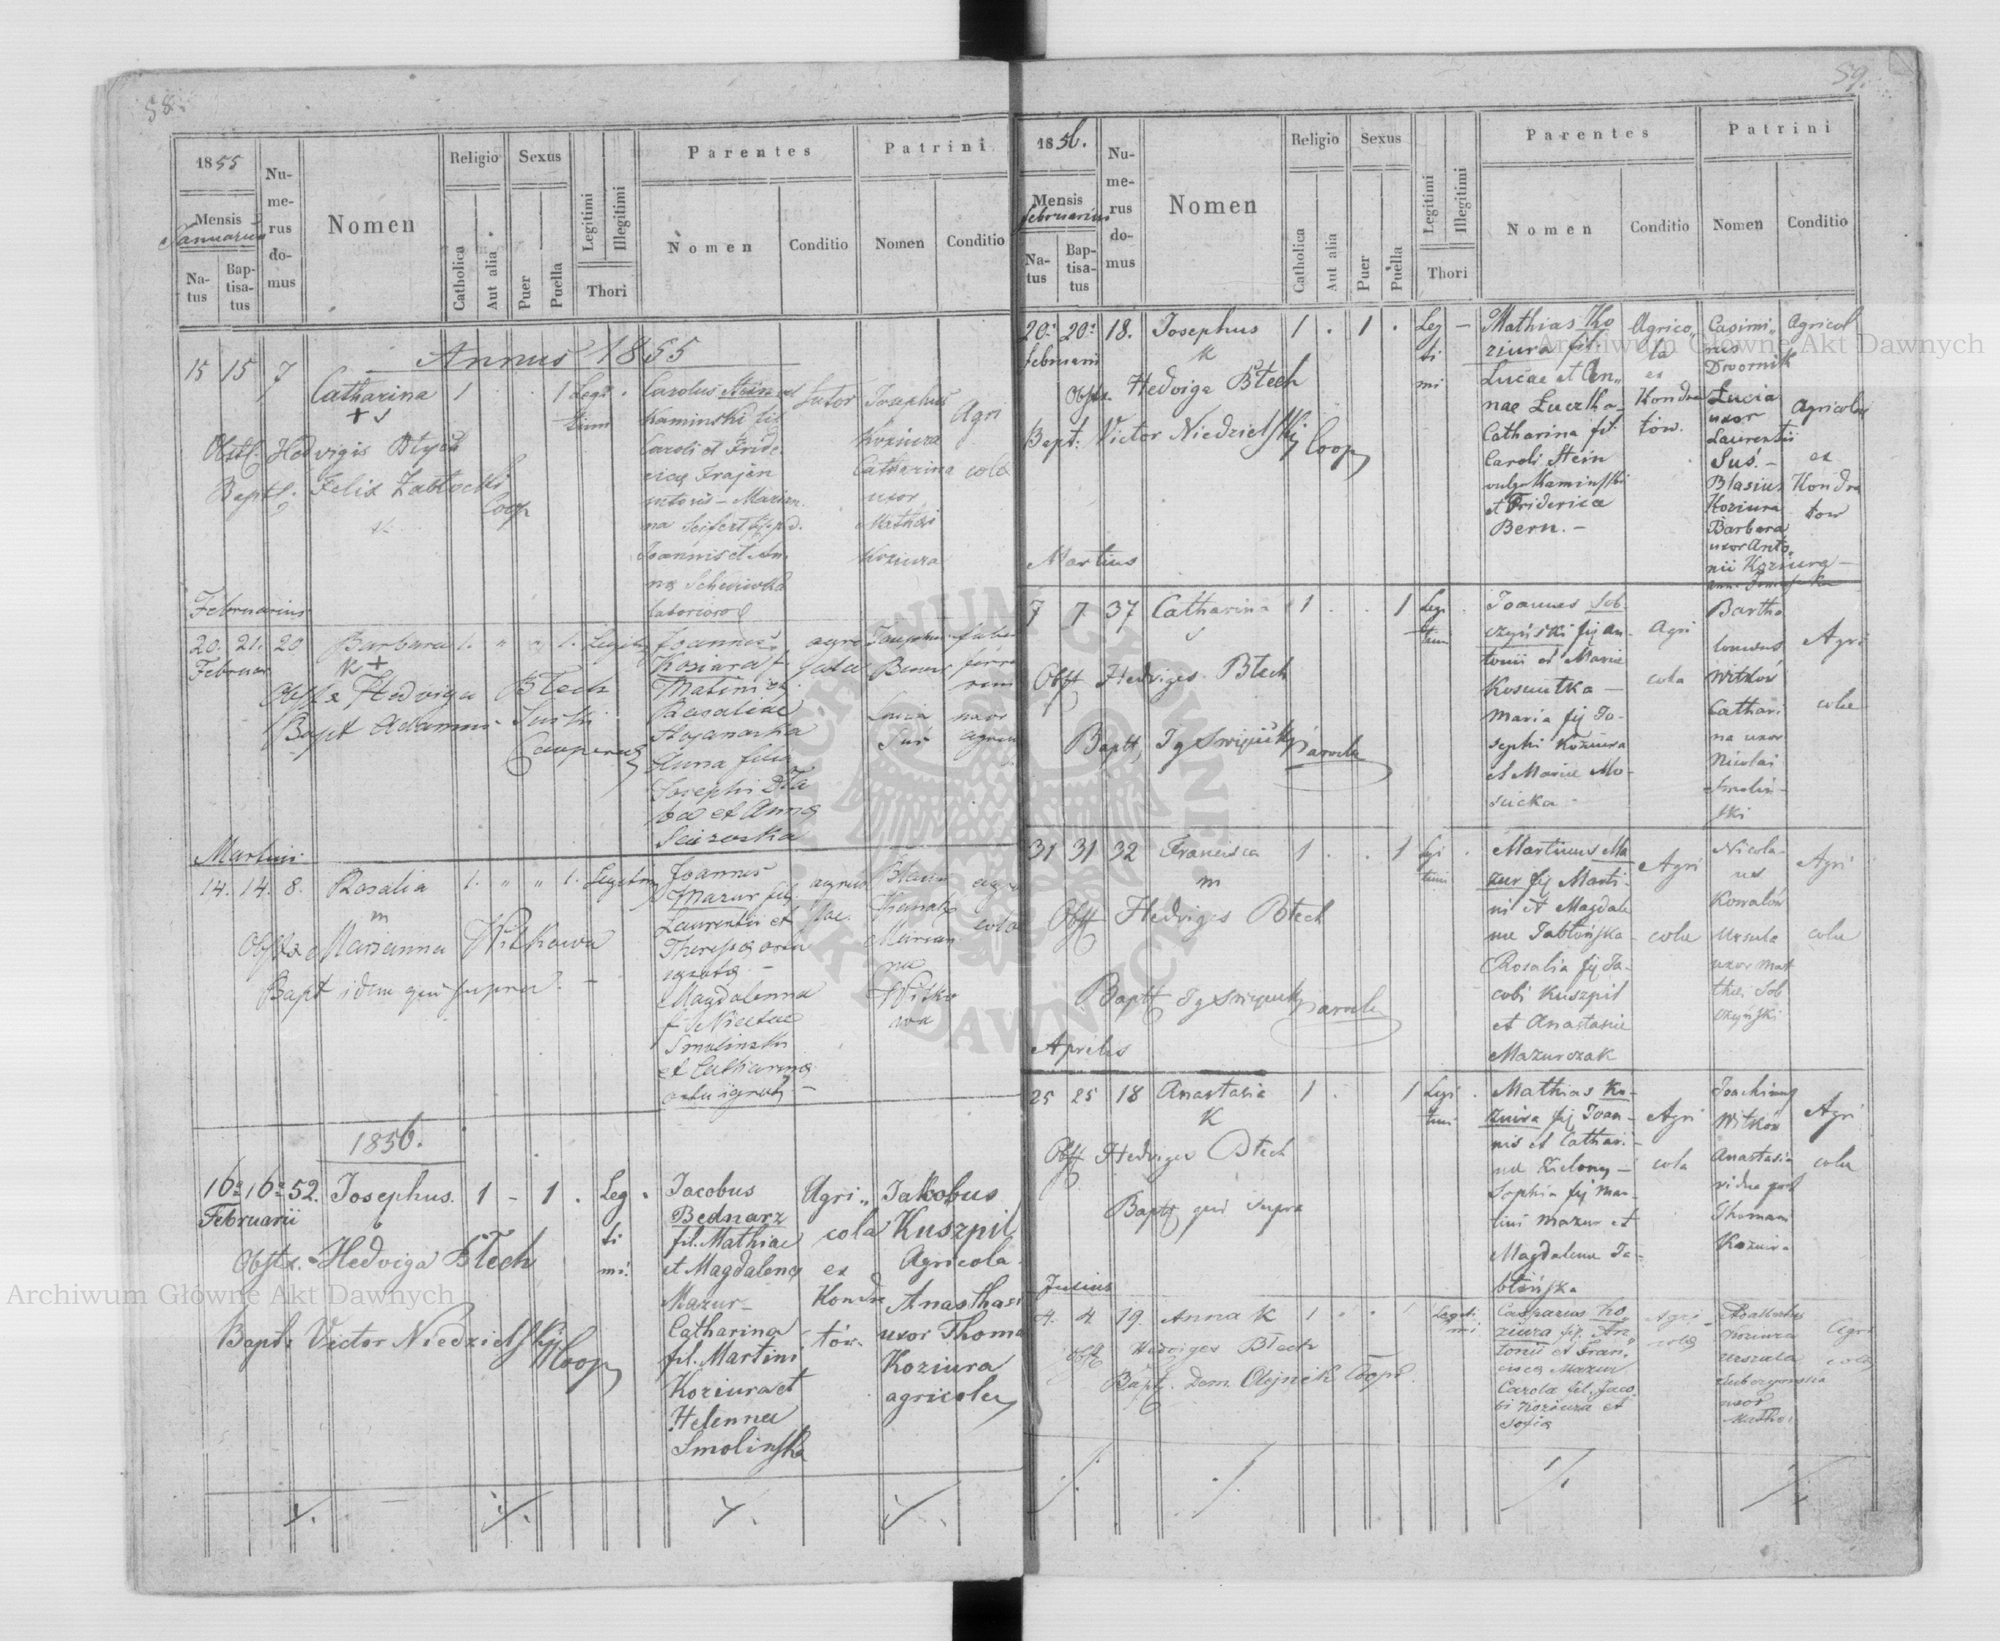 58.
1855
Mensis
Januarius
Na-
tus
Bap-
tisa-
tus
Nu-
me-
rus
do-
mus
Nomen
Religio
Catholica
Aut alia
Sexus
Puer
Puella
Legitimi
Illegitimi
Thori
Parentes
Nomen
Conditio
Patrini
Nomen
Conditio
Annus 1855
15 15 7 Catharina 1 . . 1 Legi
timi
Obst. Hedvigis Btych
Bapt. Felix Zabłocki
Coop
Carolus Stein vel
Kaminski fil.
Caroli et Fride
ricae Trajen
Marian
na Seifert
Joannis et An
nae
Sutor
Josephus
Koziura
Catharina
uxor
Mathei
Koziura
Agri
colae
Februarius
20. 21. 20 Barbara 1. " " 1. Legitimi
Februar K +
Obstx Hedviga Btech
Bapt Adamus
Cooperat
Joannes
Koziura f.
Martini et
Rosaliae
Anna filia
Josephi
bae et Anna
agri
cola
Josephus
Lucia
Suś
faber
ferra
rius
uxor
Martius
14. 14. 8. Rosalia 1. " " 1. Legitimi
m
Obstx Marianna Witkowa
Bapt idem qui supra. -
Joannes
Mazur fil.
Laurentii et
Theresia
ignota -
Magdalenna
f. Nicolae
Smolinski
et Catharina
ignota -
Marian
na
Witko
wa
1856.
16a 16a 52. Josephus. 1 - 1 . Leg
ti
mi.
Februarii
Obstx. Hedviga Btech
Bapt. Victor Niedzielskij Coop
Jacobus
Bednarz
fil. Mathiae
et Magdalena
Mazur -
Catharina
fil. Martini
Koziura et
Helenna
Smolinska
Agri"
cola
ex
Kondra
tów.
Jakobus
Kuszpil
Agricola
Anasthasi
uxor Thoma
Koziura
agricolae
59.
1856.
Mensis
Februarius
Na-
tus
Bap-
tisa-
tus
Nu-
me-
rus
do-
mus
Nomen
Religio
Catholica
Aut alia
Sexus
Puer
Puella
Legitimi
Illegitimi
Thori
Parentes
Nomen
Conditio
Patrini
Nomen
Conditio
20. 20. 18. Josephus 1 . 1 . Leg -
ti
mi
Februarii K
Obstx. Hedviga Btech
Bapt. Victor Niedzielskij Coop
Mathias Ko
ziura fil.
Lucae et An"
nae Luczko -
Catharina fil.
Caroli Stein
vulgo Kaminski
et Friderica
Bern. -
Agrico"
la
ex
Kondra
tów.
Casimi"
rus
Dwornik
Lucia
uxor
Laurentii
Suś. -
Blasius
Koziura
Barbara
uxor Anto"
nii Koziura -
Agricol
Agricolae
ex
Kondra
tow
Martius
7 7 37 Catharina 1 . . 1 Legi
timi
Obst Hedviges Btech
Bapt. Ig Swięcicki Paroch
Joannes Sob
czyński fij An-
tonii et Mariae
Kosmutka -
Maria fij Jo-
sephi Koziura
et Mariae Mo-
scicka -
Agri
cola
Bartho
lomeus
Witków
Cathari
na uxor
Nicolai
Smolin-
ski
Agri
colae
31 31 32 Francisca 1 . . 1 Legi
timi
m
Obst Hedviges Btech
Bapt Ig Swięcicki Paroch
Martinus Ma
zur fij Marti-
ni et Magdale
nae Jabłońska
Rosalia fij Ja-
cobi Kuszpil
et Anastasiae
Mazurczak
Agri
colae
Nicola-
us
Kowalów
Ursula
uxor Mat
thei Sob
czyński
Agri
colae
Aprilis
25 25 18 Anastasia 1 . 1 Legi
timi
K
Obst Hedviges Btech
Bapt qui supra
Mathias Ko-
ziura fij Joan-
nis et Cathari-
nae Zielony -
Sophia fij Mar-
tini Mazur et
Magdalenae Ja-
błońska
Agri
cola
Joachimus
Witków
Anastasia
vidua post
Thomam
Koziura
Agri
colae
Julius
4. 4 19. Anna K 1 . . 1 Legiti
mi
Obst Hedviges Btech
Bapt. Dom. Olejnik Coop.
Casparus Ko
ziura fil. An"
tonii et Fran"
cisca Mazur
Carola fil. Jaco
bi Koziura et
Sofia
Agri
cola
Koziura
Urszula
uxor
Mathei
Agri
colae
Archiwum Główne Akt Dawnych
Archiwum Główne Akt Dawnych
ARCHIWUM GŁÓWNE AKT DAWNYCH